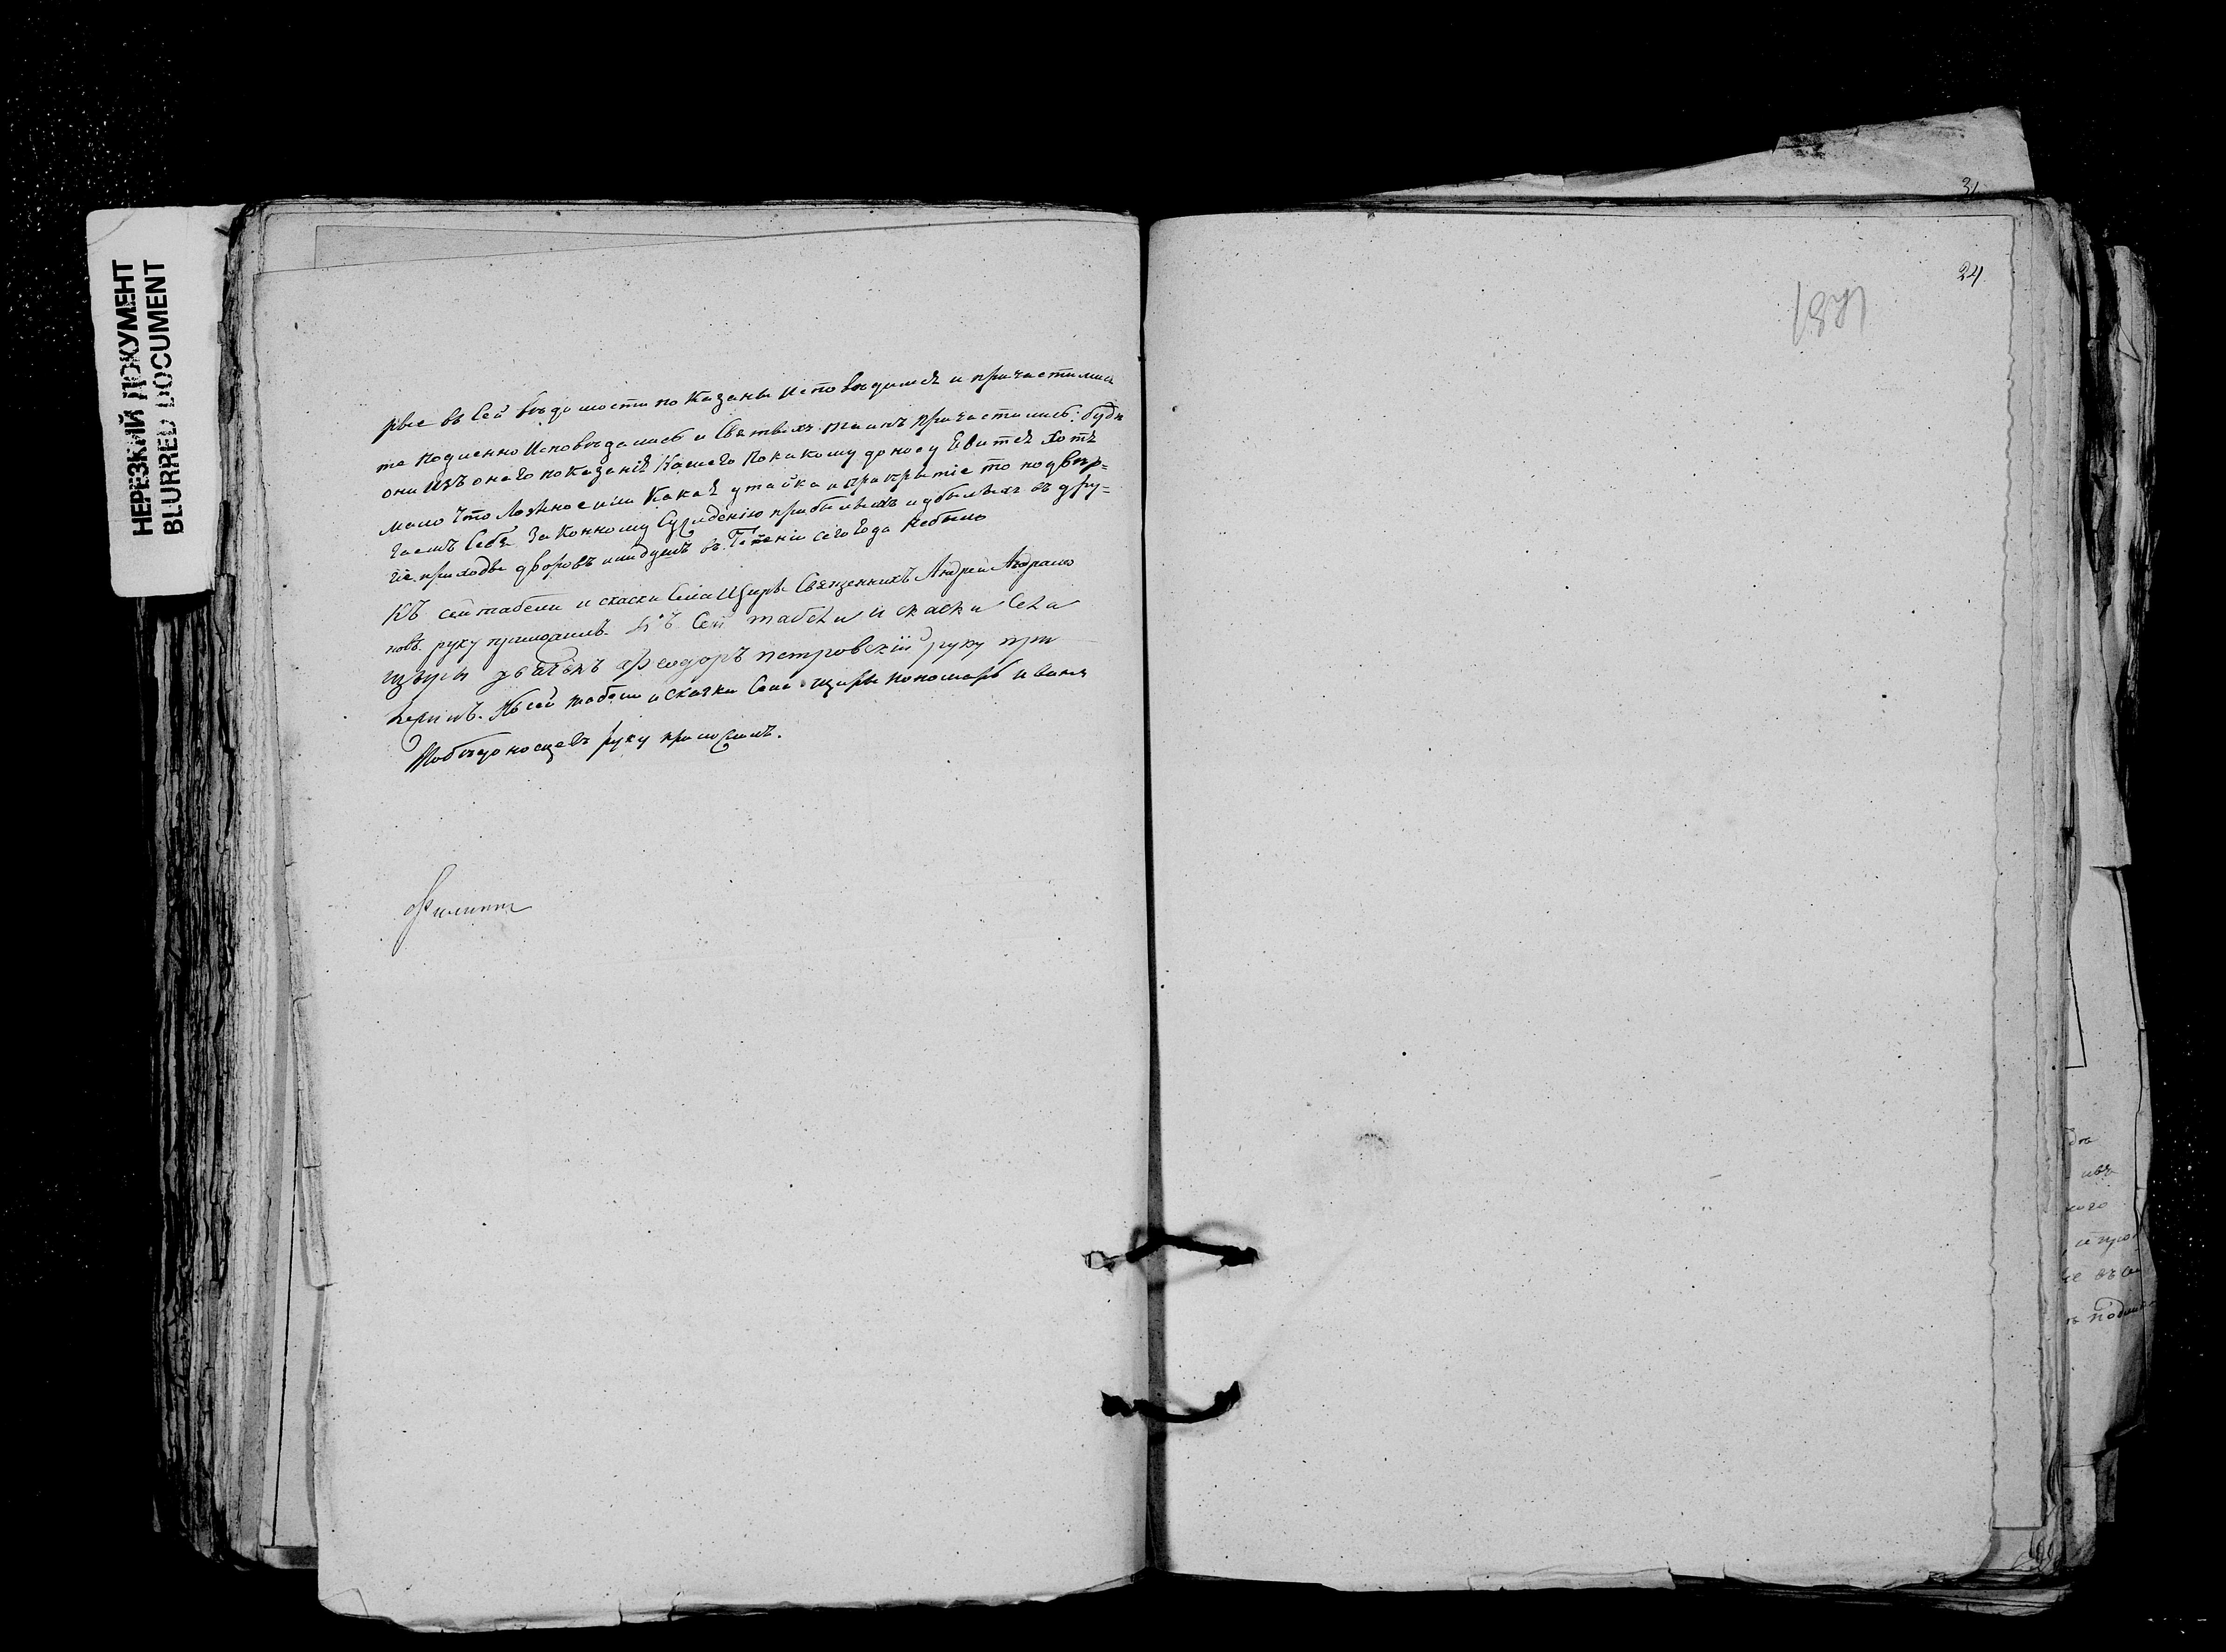 НЕРЕЗКИЙ ДОКУМЕНТ
BLURRED DOCUMENT
рые въ сей вѣдомости показаны исповѣдишся и причастишися
те подленно исповѣдались и святыхъ таинъ причастились: буде
они изъ онаго показанія нашего по какому доносу явится хотя
мало что ложное или какая утайка и прикрытіе то подвер=
гаемъ себя законному сужденію прибылыхъ и убылыхъ въ дру=
гіе приходы дворовъ или душъ въ теченіи сего года небыло
Къ сей табели и скаски села Щиры священникъ Андрей Авраамо
новъ руку приложилъ. Къ сей табели и скаски села
Щиры дьячекъ Феодоръ Петровскій руку при
ложилъ. Къ сей табели и скаски села Щиры пономарь Иванъ
Победоносцевъ руку приложилъ.
Филиппъ
31
24
1871